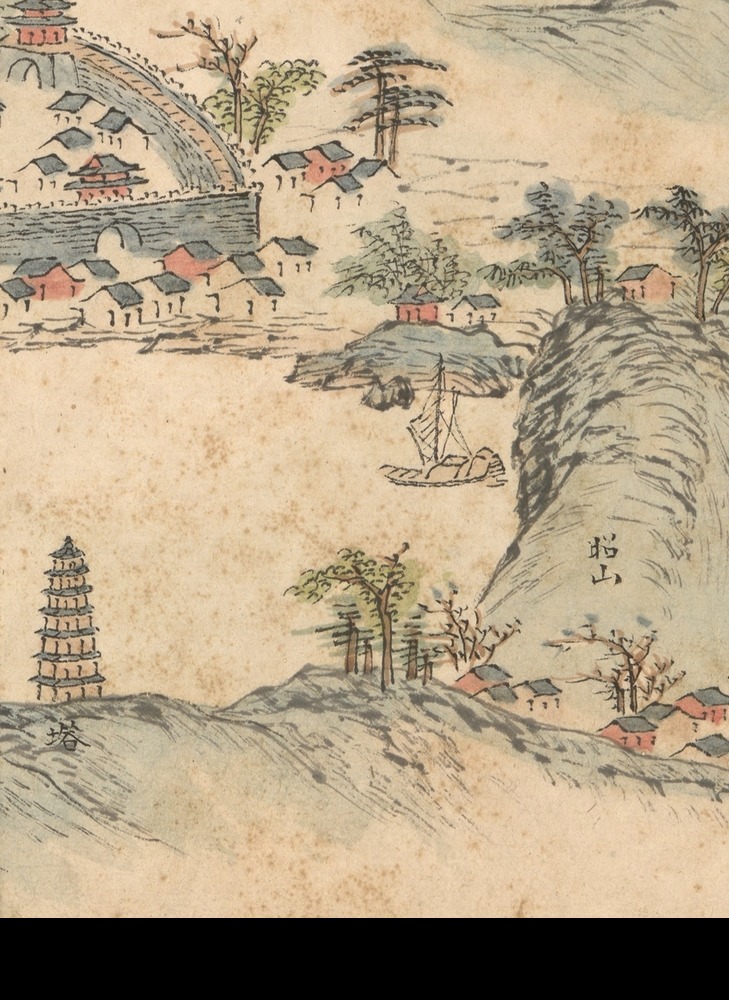 昭山
塔